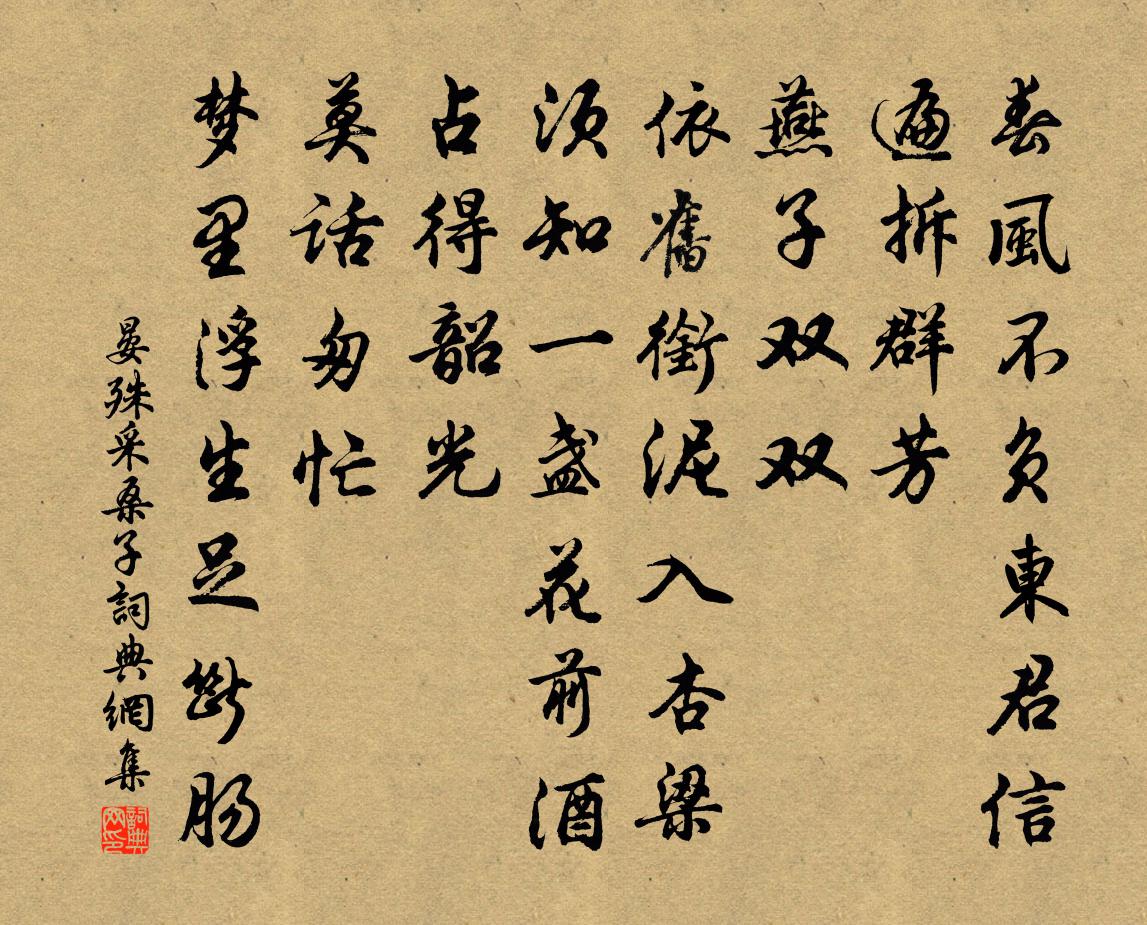 春風不负東君信
遍拆群芳
燕子双双
依舊銜泥入杏梁
须知一盏花前酒
占得韶光
莫话匆忙
梦里浮生足斷肠
晏殊采桑子詞典網集
詞典网印